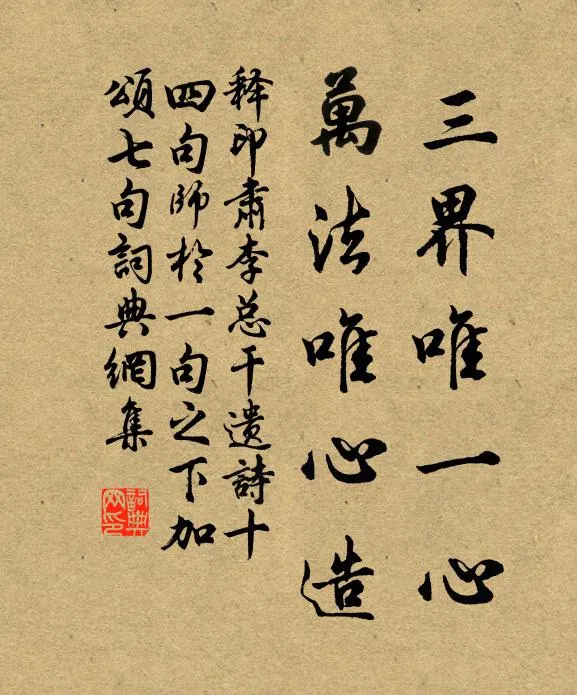 三界唯一心
萬法唯心造
释印肃李总干遗詩十
四句師於一句之下加
頌七句詞典網集
詞典网印